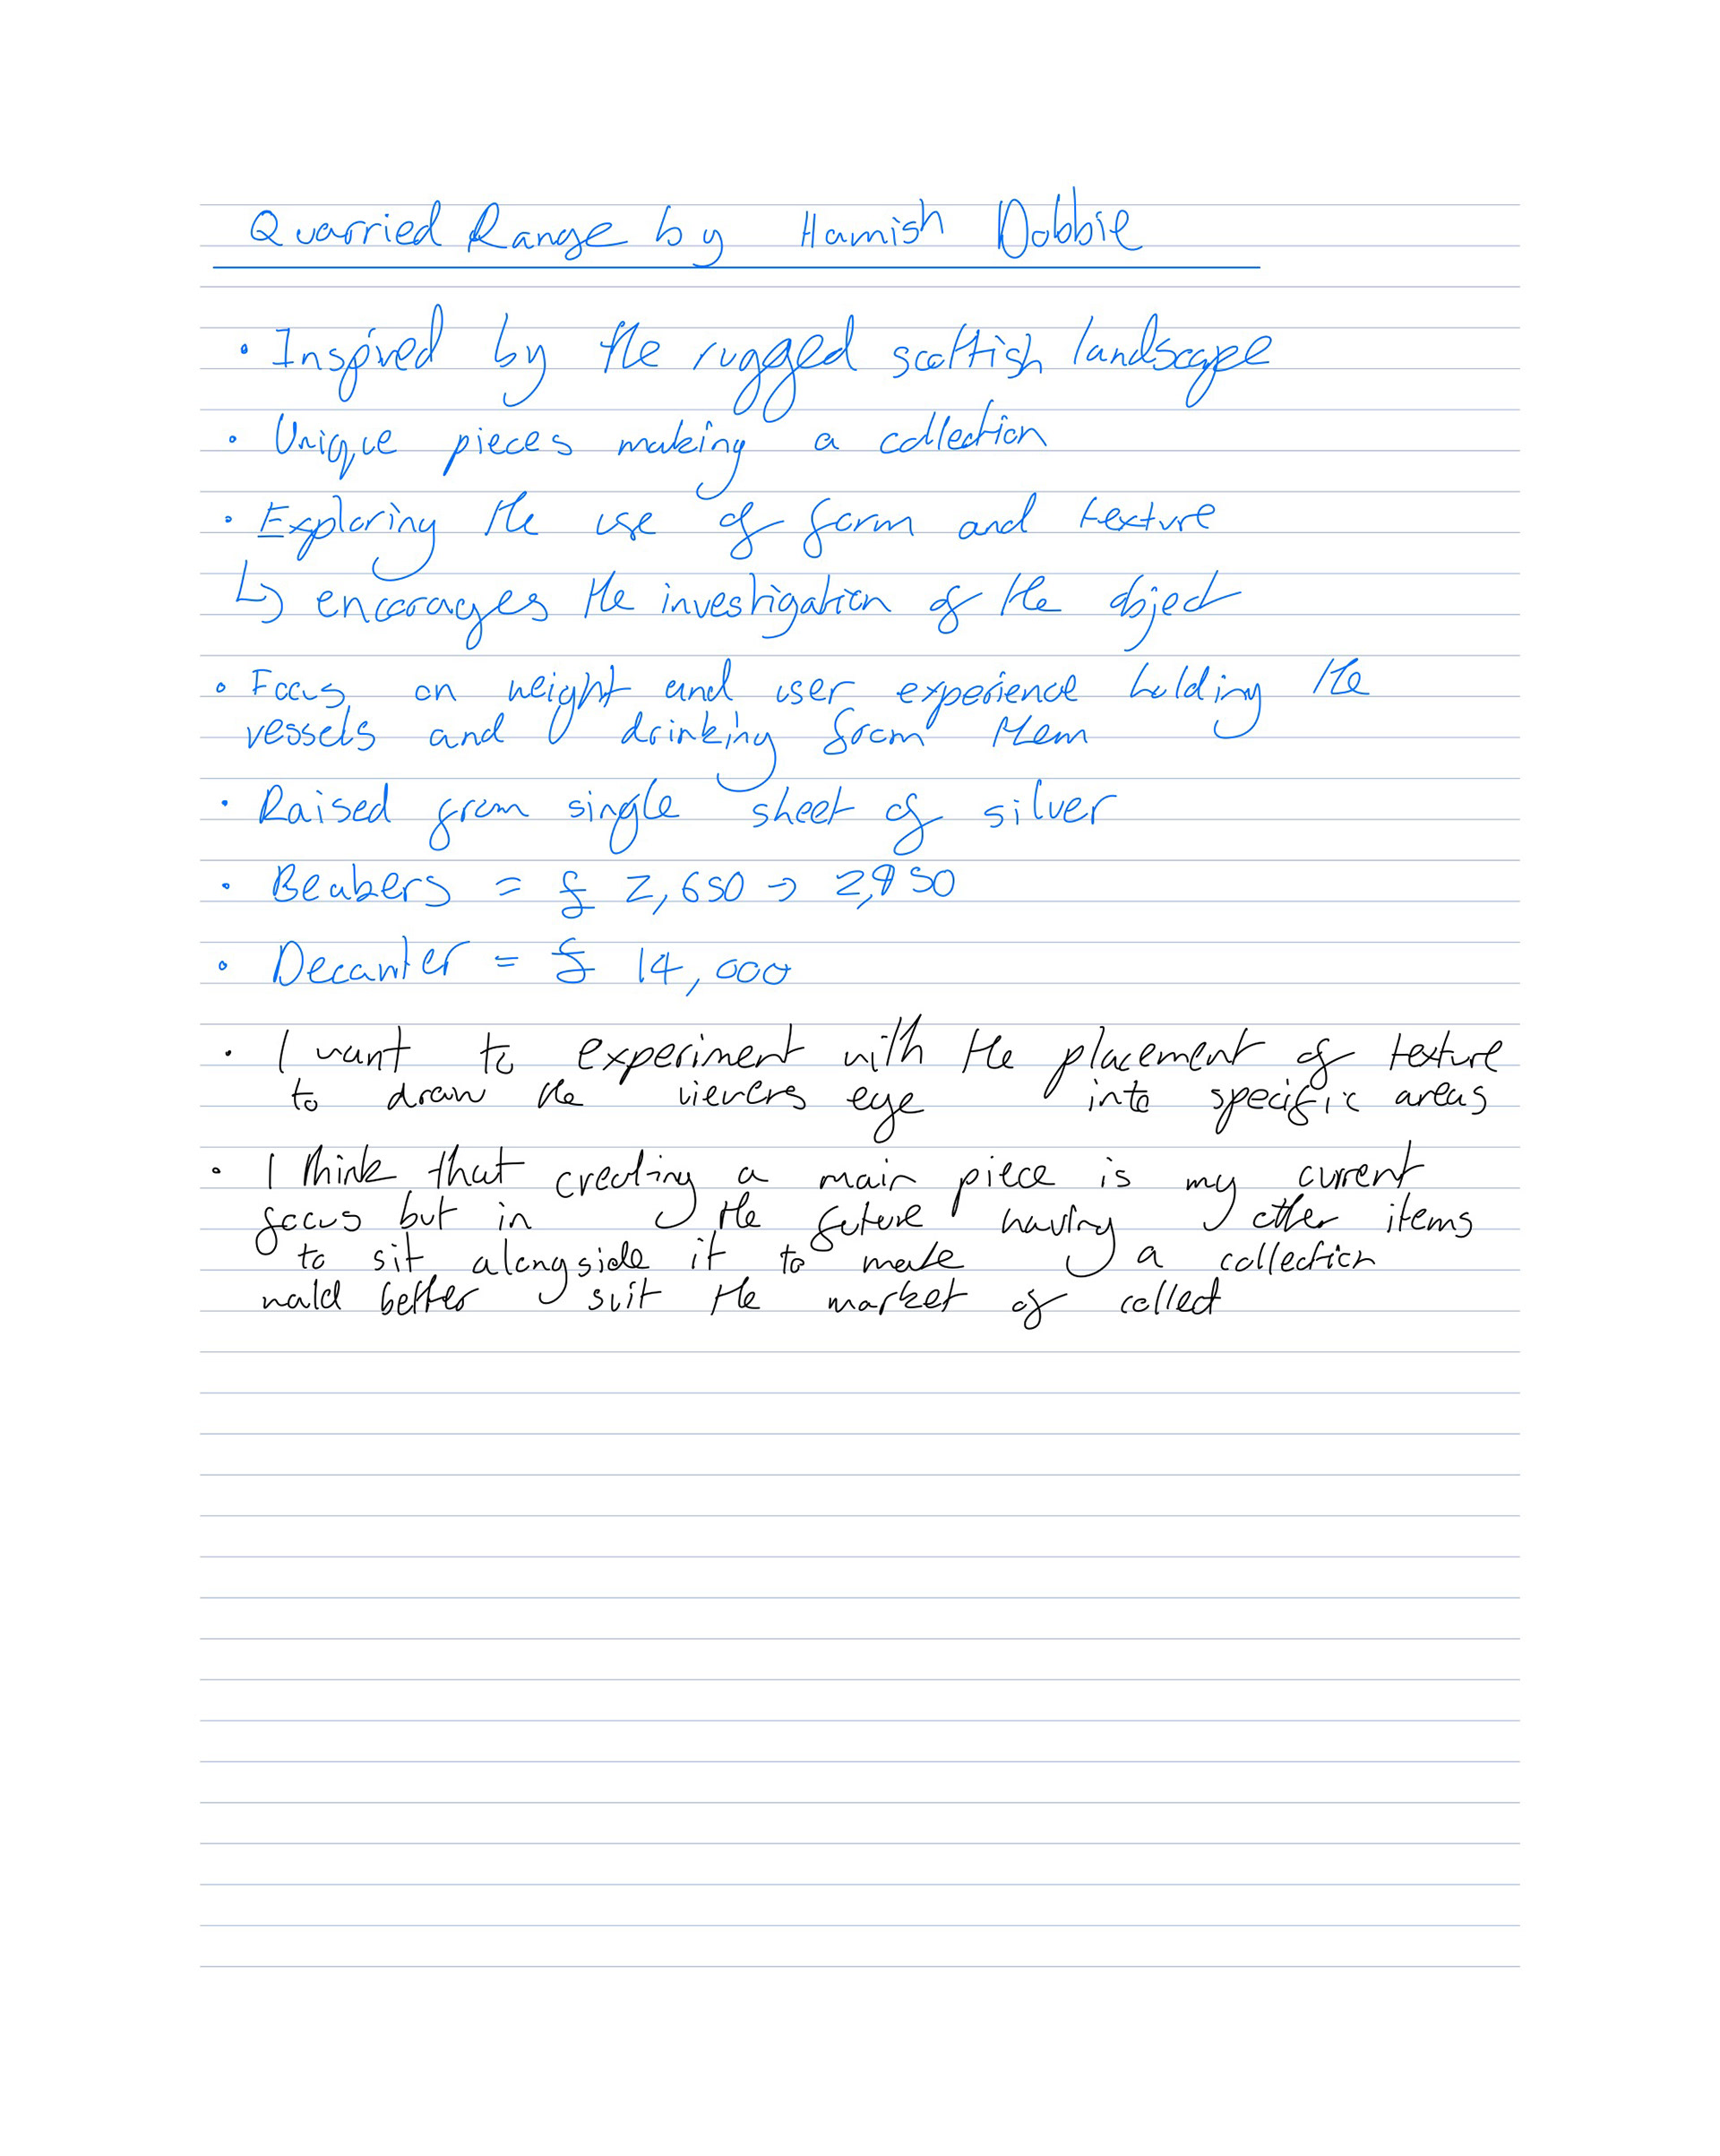 Quarried Range by Hamish Dobbie
• Inspired by the rugged scottish landscape
• Unique pieces making a collection
• Exploring the use of form and texture
↳ encorages the investigation of the object
• Focus on weight and user experience holding the
vessels and drinking from them
• Raised from single sheet of silver
• Beakers = £ 2,650 → 2,950
• Decanter = £ 14,000
• I want to experiment with the placement of texture
to draw the viewers eye into specific areas
• I think that creating a main piece is my current
focus but in the future having other items
to sit alongside it to make a collection
would better suit the market of collect